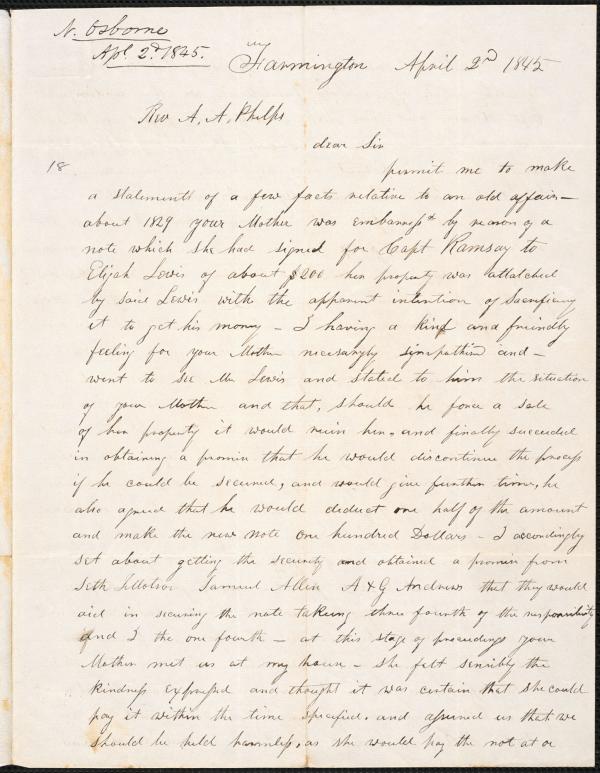 N. Osborne
Apl. 2d 1845.
Farmington April 2d 1845
Rev A. A. Phelps
dear Sir
18
permit me to make
a statement of a few facts relative to an old affair—
about 1829 your Mother was embarrasst by reason of a
note which she had signed for Capt Ramsay to
Elijah Lewis of about $200 her property was attatched
by said Lewis with the apparent intention of Sacrificing
it to get his money – I having a kind and friendly
feeling for your Mother necessaryly simpathised and –
went to see Mr Lewis and stated to him the situation
of your Mother and that, should he force a sale
of her property it would ruin her, and finally succeeded
in obtaining a promis that he would discontinue the process
if he could be secured, and would give further time, he
also agreed that he would deduct one half of the amount
and make the new note one hundred Dollars – I accordingly
set about getting the security and obtained a promis from
Seth Samuel Allen A & G Andrews that they would
aid in securing the note takeing three fourth of the responsibility
and I the one fourth – at this stage of proceedings your
Mother met us at my house – She felt sensibly the
kindness expressed and thought it was certain that she could
pay it within the time specified, and assured us that we
should be held harmless, as she would pay the not at or